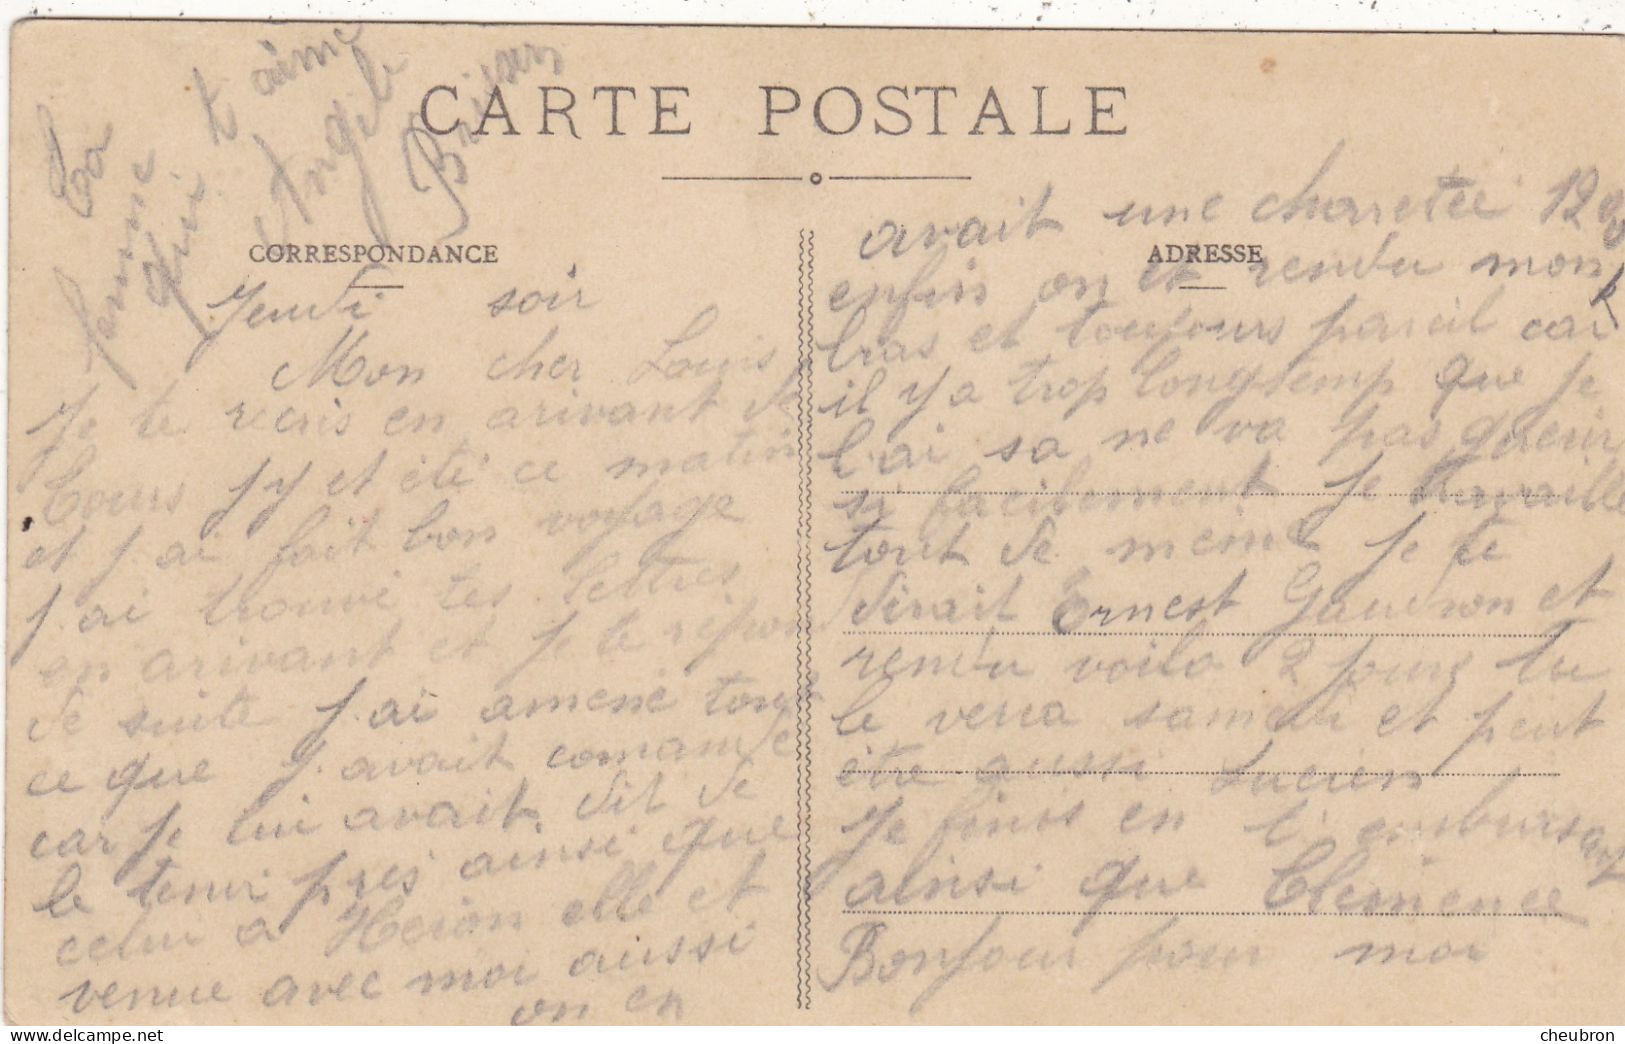 CARTE POSTALE
CORRESPONDANCE
ADRESSE
Jeudi soir
Mon cher Louis
Je te recris en arivant de
Tours j y et été ce matin
et j ai fait bon voyage
j. ai trouvé tes lettres
en arivant et je te répon
de suite j. ai amené tout
ce que j. avait comandé
car je lui avait dit de
le tenir près ainsi que
celui a Heron elle et
venue avec moi aussi
on en
avait une charetée 12
enfin on et rendu mon
bras et toujours pareil car
il y a trop longtemp que je
l. ai sa ne va pas guerir
si facilement je travaille
tout de meme je te
dirait Ernest Gaudron et
rendu voila 2 jours tu
le verra samedi et peut
être aussi Lucien
Je finis en t' embrassant
ainsi que Clemence
Bonjour pour moi
Ta
femme
qui
t aime
Angele